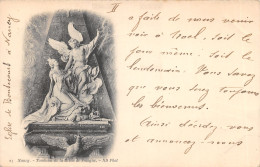 II
a faite de nous venir
voir à Noël, soit le
jour même, soit le
lendemain. Vous savez
que vous serez toujours
les bienvenus.
Ainsi décidez vous
et annoncez-nous
Eglise de Bonsecours à Nancy
21 Nancy. - Tombeau de la Reine de Pologne. - ND Phot